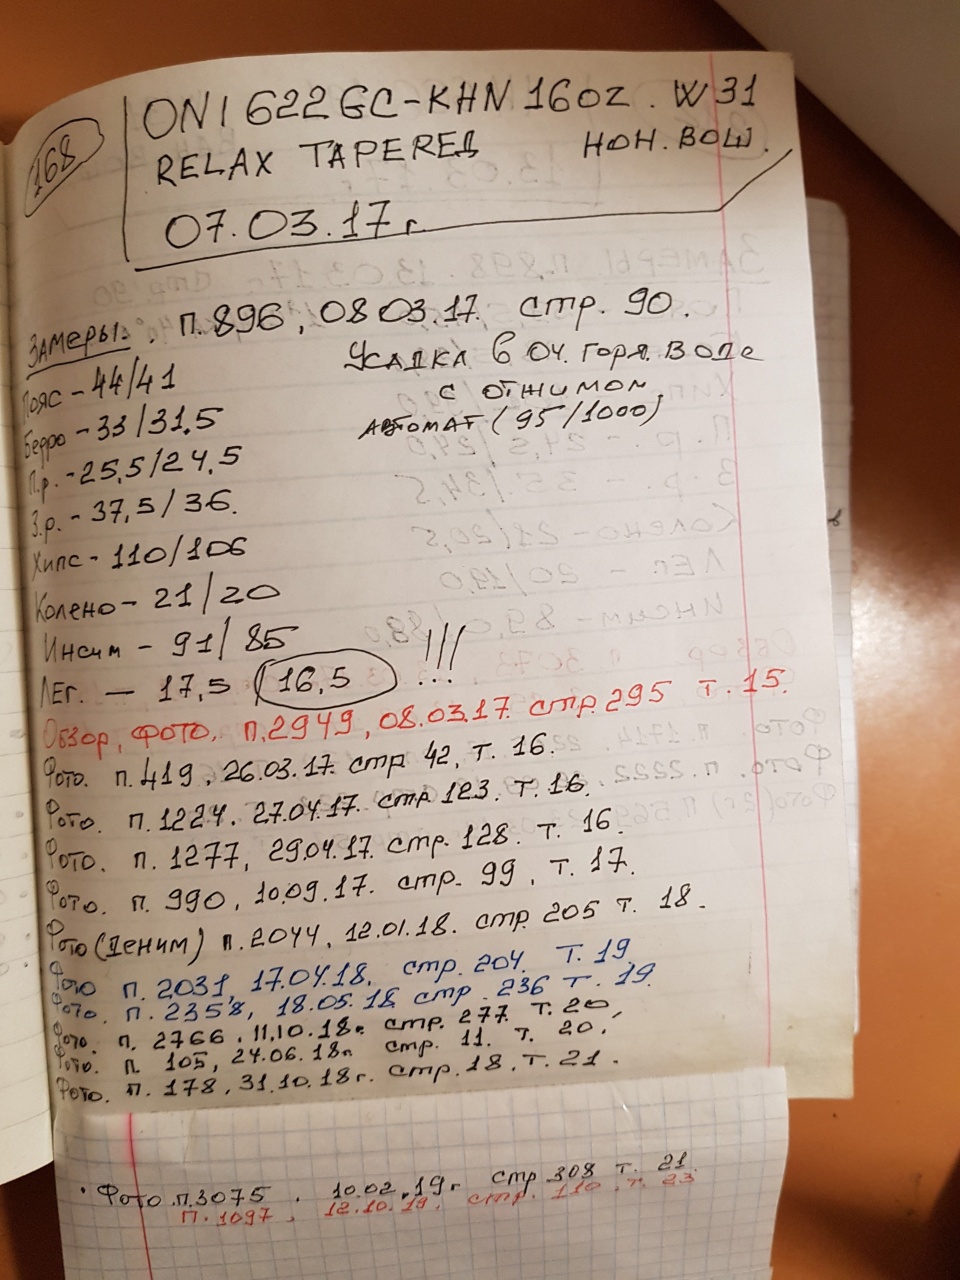 168
ONI 622GC-KHN 16OZ. W31
RELAX TAPERED НОН.ВОШ.
07.03.17г.
Замеры. п.896, 08.03.17. стр. 90.
Усадка в оч. горя. воде
с отжимом,
автомат (95/1000)
Пояс - 44/41
Бедро - 33/31,5
П.р. - 25,5/24,5
З.р. - 37,5/36.
Хипс - 110/106
Колено - 21/20
Инсим - 91/85
Лег. — 17,5 /16,5 !!!
Обзор, фото, п.2949, 08.03.17. стр.295 т.15.
Фото. п.419, 26.03.17. стр 42, т. 16.
Фото. п.1224. 27.04.17. стр 123. т.16.
Фото. п. 1277, 29.04.17. стр. 128. т. 16.
Фото. п. 990, 10.09.17. стр. 99, т. 17.
Фото (Деним) п.2044, 12.01.18. стр. 205 т. 18.
Фото п. 2031, 17.04.18, стр. 204. т.19
Фото. п. 2358, 18.05.18 стр. 236 т. 19.
Фото. п. 2766, 11.10.18г. стр. 277. т. 20,
Фото. п. 105, 24.06.18г. стр. 11. т. 20.
Фото. п. 178, 31.10.18г. стр. 18, т. 21.
Фото п.3075. 10.02.19г стр 308 т. 21.
п.1097, 12.10.19, стр. 110. т. 23